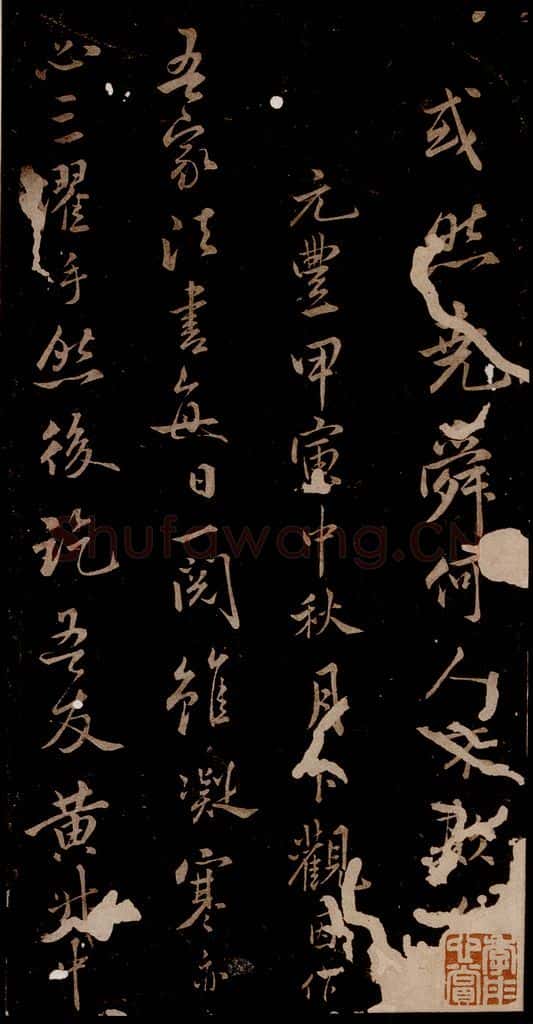 或然堯舜何人哉敢
元豐甲寅中秋月下觀因作
吾家法書每日一閱雖凝寒亦
必三濯手然後訖吾友黃
中
Shufawang.CN